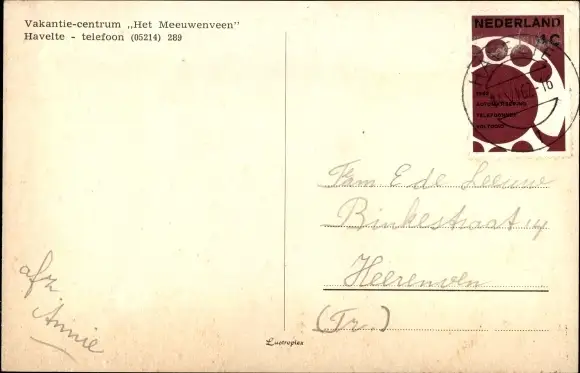 Vakantie-centrum „Het Meeuwenveen"
Havelte - telefoon (05214) 289
NEDERLAND
4C
1962
AUTOMATISERING
TELEFOONNET
VOLTOOID
Fam E de Leeuw
Binkestraat 14
Heerenven
(Fr.)
afz
Annie
Lustroplex